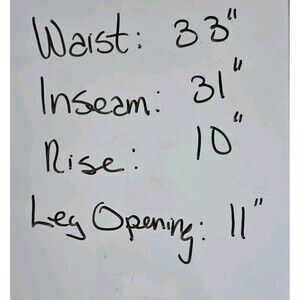 Waist: 33"
Inseam: 31"
Rise: 10"
Leg Opening: 11"